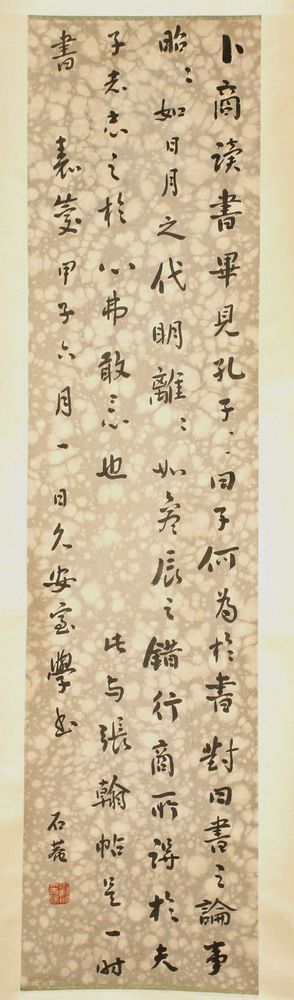 卜商讀書畢見孔子〻曰子何為於書對曰書之論事
昭〻如日月之代明離〻如參辰之錯行商所得於夫
子者志之於心弗敢忘也 此与張翰帖是一時
書 甲子六月一日久安室學書 石菴